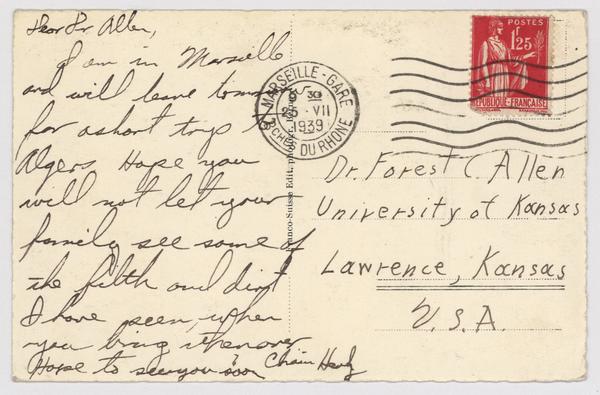 Dear Dr. Allen,
I am in Marseille
and will leave tomorrow
for a short trip to
Algers. Hope you
will not let your
family see some of
the filth and dirt
I have seen, when
you bring them over
Hope to see you soon
POSTES
1F25
RÉPUBLIQUE FRANÇAISE
MARSEILLE-GARE
9 30
25 VII
1939
BCHES DU RHONE
Dr. Forest C. Allen
University of Kansas
Lawrence, Kansas
U.S.A.